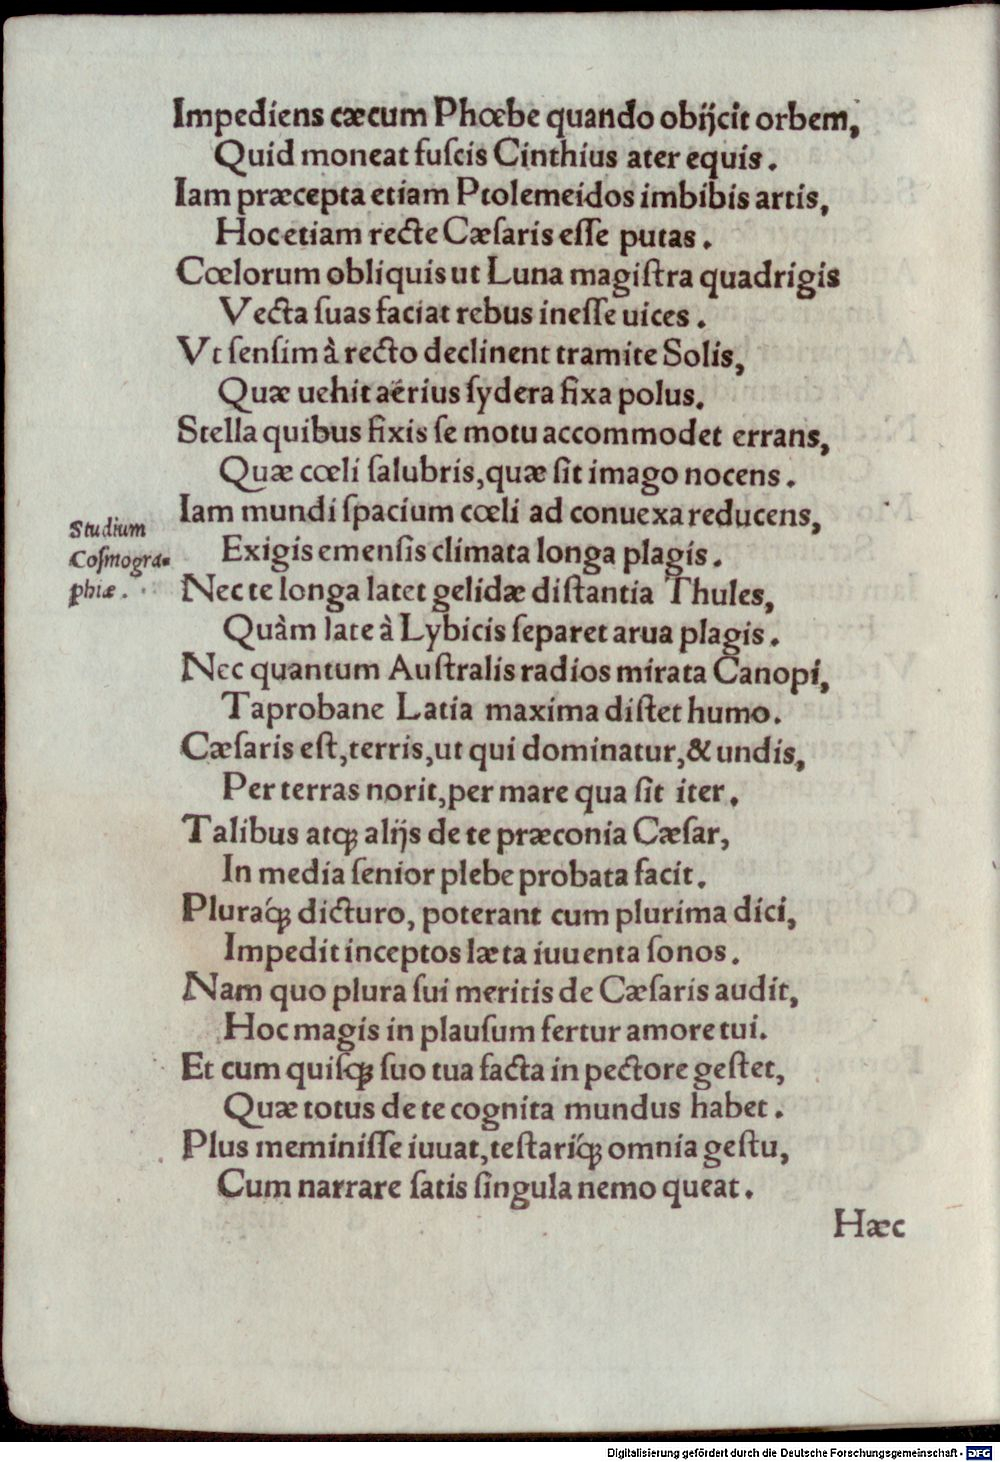 Impediens cæcum Phœbe quando obijcit orbem,
Quid moneat fuſcis Cinthius ater equis.
Iam præcepta etiam Ptolemeidos imbibis artis,
Hoc etiam recte Cæſaris eſſe putas.
Cœlorum obliquis ut Luna magiſtra quadrigis
Vecta ſuas faciat rebus ineſſe uices.
Vt ſenſim à recto declinent tramite Solis,
Quæ uehit aërius ſydera fixa polus.
Stella quibus fixis ſe motu accommodet errans,
Quæ cœli ſalubris, quæ ſit imago nocens.
Iam mundi ſpacium cœli ad conuexa reducens,
Exigis emenſis climata longa plagis.
Studium
Coſmogra-
phiæ.
Nec te longa latet gelidæ diſtantia Thules,
Quàm late à Lybicis ſeparet arua plagis.
Nec quantum Auſtralis radios mirata Canopi,
Taprobane Latia maxima diſtet humo.
Cæſaris eſt, terris, ut qui dominatur, & undis,
Per terras norit, per mare qua ſit iter.
Talibus atq; alijs de te præconia Cæſar,
In media ſenior plebe probata facit.
Pluraq́; dicturo, poterant cum plurima dici,
Impedit inceptos læta iuuenta ſonos.
Nam quo plura ſui meritis de Cæſaris audit,
Hoc magis in plauſum fertur amore tui.
Et cum quiſq; ſuo tua facta in pectore geſtet,
Quæ totus de te cognita mundus habet.
Plus meminiſſe iuuat, teſtariq́; omnia geſtu,
Cum narrare ſatis ſingula nemo queat.
Hæc
Digitalisierung gefördert durch die Deutsche Forschungsgemeinschaft - DFG